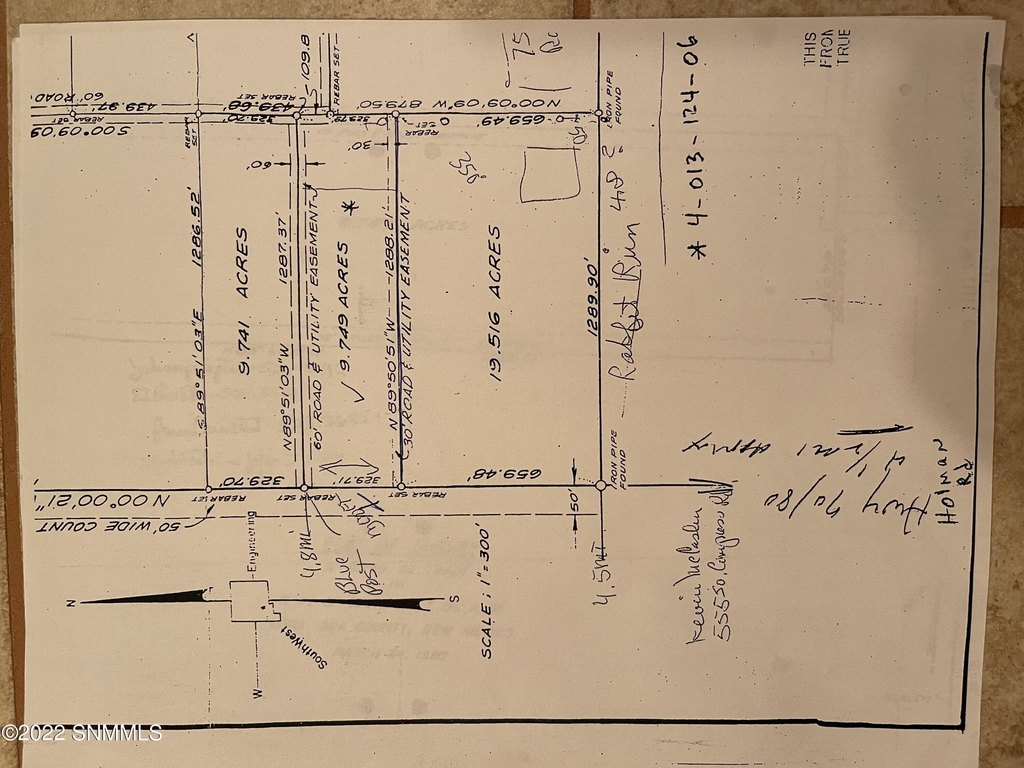 THIS
FROM
TRUE
60' ROAD
439.97'
REBAR SET
S 00°09'09
REBAR SET
439.68'
REBAR SET
329.70'
109.8
REBAR SET
329.79'
N 00°09'09" W 879.50'
REBAR SET
659.49'
IRON PIPE
FOUND
S 89°51'03"E 1286.52'
9.741 ACRES
60'
N 89°51'03"W 1287.37'
60' ROAD & UTILITY EASEMENT
9.749 ACRES
*
30'
N 89°50'51"W 1288.21'
30' ROAD & UTILITY EASEMENT
19.516 ACRES
75
50
1289.90'
Rabbit Run
* 4-013-124-06
N 00°00'21"
REBAR SET
329.70'
REBAR SET
329.71'
REBAR SET
659.48'
IRON PIPE
FOUND
50' WIDE COUNT
50'
4.8 mi
Blue
Post
4.5 mi
Hwy 70/80
approx
Holman
Rd
555 So. Compress Rd
N
S
W
SouthWest
Engineering
SCALE; 1"=300'
©2022 SNMMLS